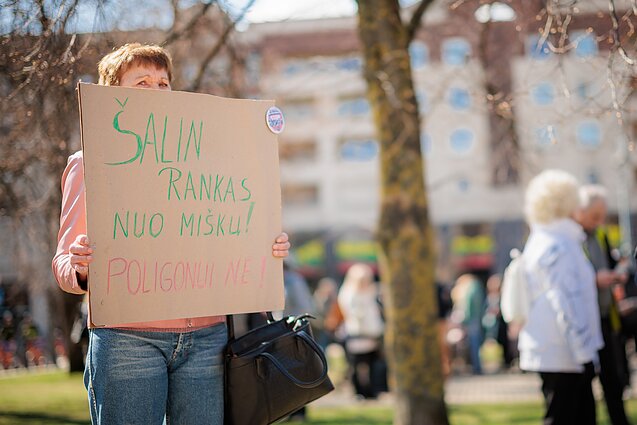 ŠALIN
RANKAS
NUO MIŠKŲ!
POLIGONUI NE!